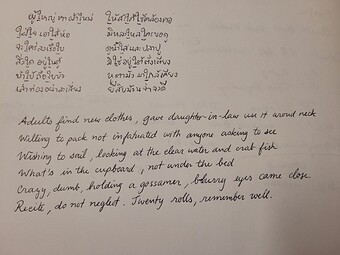 ผู้ใหญ่หาผ้าใหม่ ให้สะใภ้ใช้คล้องคอ
ใฝ่ใจเอาใส่ห่อ มิหลงใหลใครขอดู
จะใคร่ลงเรือใบ ดูน้ำใสและปลาปู
สิ่งใดอยู่ในตู้ มิใช่อยู่ใต้ตั่งเตียง
บ้าใบ้ถือใยบัว หูตามัวมาใกล้เคียง
เล่าท่องอย่าละเลี่ยง ยี่สิบม้วนจำจงดี
Adults find new clothes, gave daughter-in-law use it around neck
Willing to pack not infatuated with anyone asking to see
Wishing to sail, looking at the clear water and crab fish
What's in the cupboard, not under the bed
Crazy, dumb, holding a gossamer, blurry eyes came close.
Recite, do not neglect. Twenty rolls, remember well.